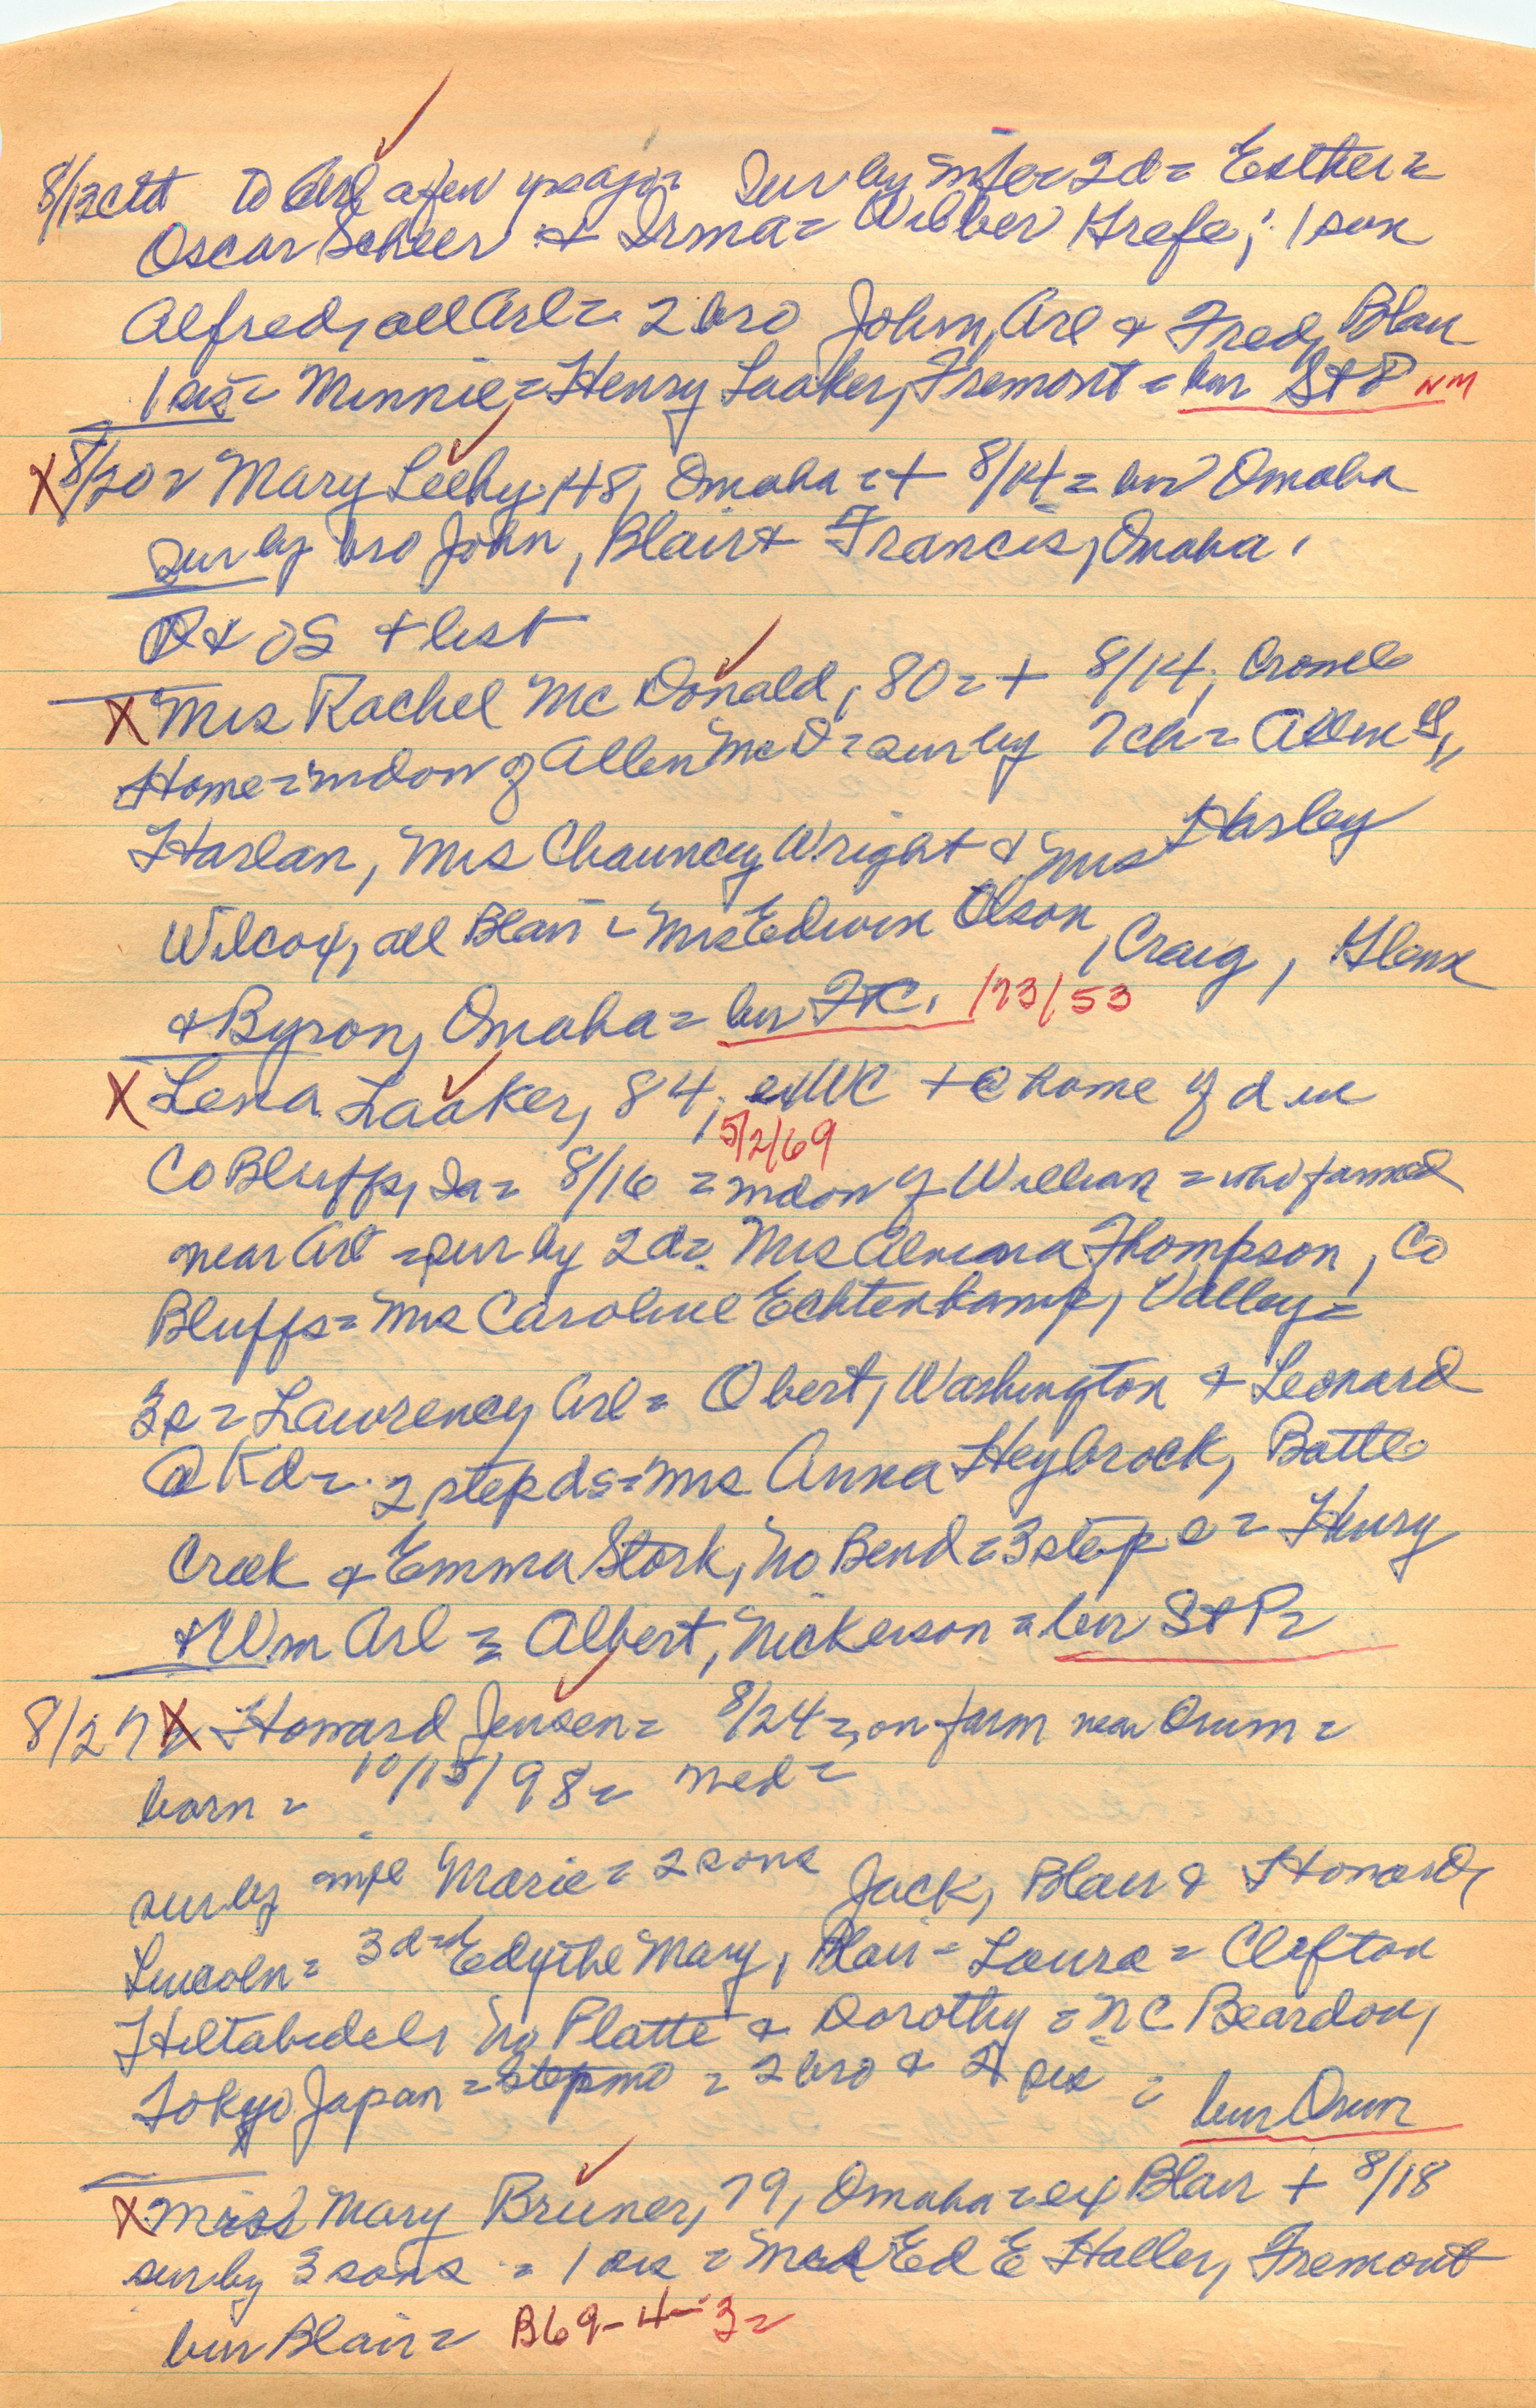 8/13 ctd to Arl a few yrs ago = Sur by wife = 2d = Esther =
Oscar Scheer & Irma = Wilber Grefe; 1 son
Alfred, all Arl = 2 bro John, Arl & Fred, Blair
1 sis = Minnie = Henry Laaker, Fremont = bur St P NM
X 8/20 = Mary Leehy, 48, Omaha = + 8/14 = bur Omaha
sur by bro John, Blair & Francis, Omaha.
& OS + list
X Mrs Rachel McDonald, 80 = + 8/14, Crowell
Home = widow of Allen McD = sur by 7 ch = Allen
Harlan, Mrs Chauncey Wright & Mrs Harley
Wilcox, all Blair = Mrs Edwin Olson, Craig, Glenn
& Byron, Omaha = bur FC. 173/53
X Lena Laaker, 84, exWC + @ home of d in
5/2/69
Co Bluffs, Ia = 8/16 = widow of William = who farmed
near Arl = sur by 2d = Mrs Alvina Thompson, Co
Bluffs = Mrs Caroline Echtenkamp, Valley =
3s = Lawrence, Arl = Obert, Washington & Leonard
@ Kd = 2 step ds = Mrs Anna Heybrock, Battle
Creek & Emma Stork, No Bend = 3 step s = Henry
& Wm Arl = Albert, Nickerson = bur St P =
8/27 X Howard Jensen = 8/24 = on farm near Orum =
born = 10/15/98 = med =
sur by wife Marie = 2 sons Jack, Blair & Howard,
Lincoln = 3d = Edythe Mary, Blair = Laura = Clifton
Hiltabidel, No Platte & Dorothy = NC Beardon,
Tokyo Japan = stepmo = 2 bro & sis = bur Orum
X Miss Mary Bruner, 79, Omaha = ex Blair + 8/18
sur by 3 sons = 1 sis = Ed E Haller, Fremont
bur Blair = B69-4-3 =